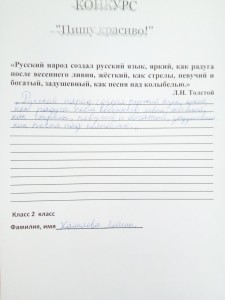 КОНКУРС
"Пишу красиво!"
«Русский народ создал русский язык, яркий, как радуга
после весеннего ливня, жёсткий, как стрелы, певучий и
богатый, задушевный, как песня над колыбелью.»
Л.Н. Толстой
Русский народ создал русский язык, яркий,
как радуга после весеннего ливня,
как стрелы, певучий и богатый, задушевный
как песня над
Класс 2 класс
Фамилия, имя